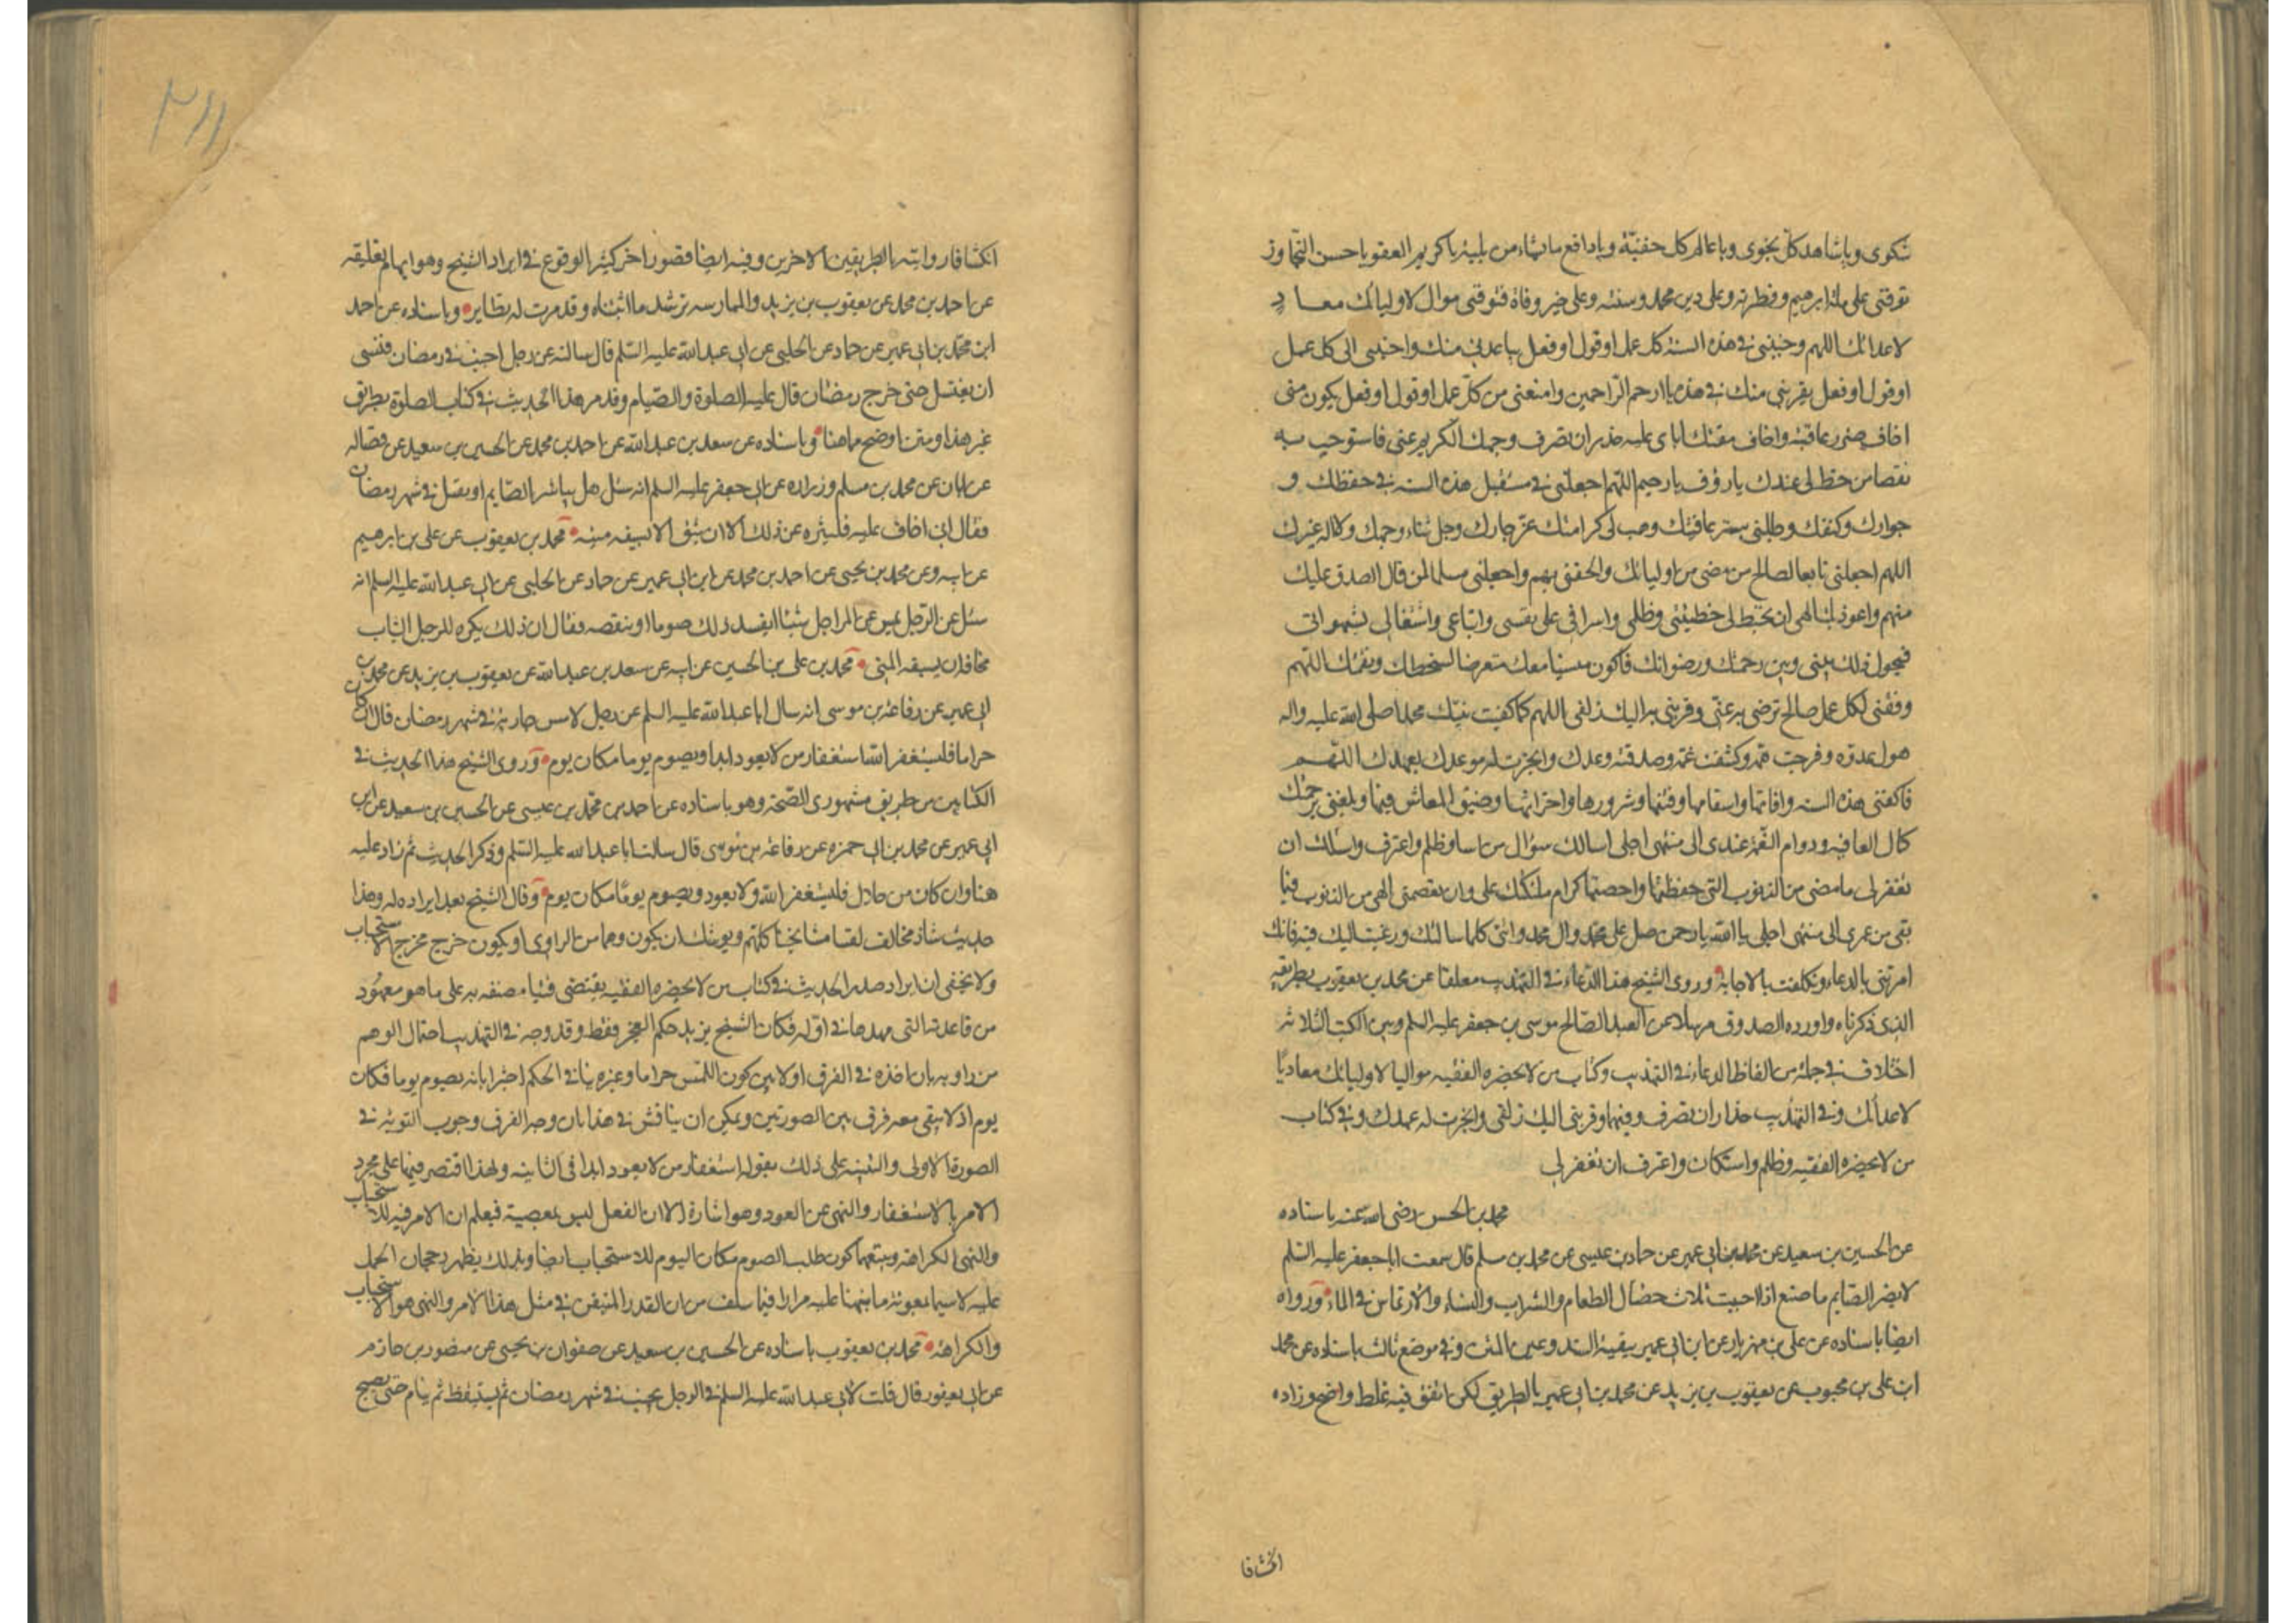 شكوى ويا شاهد كل نجوى ويا عالم كل خفيّة ويا دافع ما تشاء من بلية يا كريم العفو يا حسن التجاوز
توفني على ملة ابرهيم وفطرته وعلى دين محمد وسنته وعلى خير وفاة فتوفني موال لاوليائك معاد
لاعدائك اللهم وجنبني في هذه السنة كل عمل او قول او فعل يباعدني منك واجلبني الى كل عمل
او قول او فعل يقربني منك في هذه يا ارحم الراحمين وامنعني من كل عمل او قول او فعل يكون مني
اخاف ضرر عاقبته واخاف مقتك اياى عليه حذر ان تصرف وجهك الكريم عني فاستوجب به
نقصا من حظ لى عندك يا رؤف يا رحيم اللهم اجعلني في مستقبل هذه السنة في حفظك و
جوارك وكنفك وجللني ستر عافيتك وهب لى كرامتك عز جارك وجل ثناء وجهك ولا اله غيرك
اللهم اجعلني تابعا لصالح من مضى من اوليائك والحقني بهم واجعلني مسلما لمن قال الصدق عليك
منهم واعوذ بك الهى ان تحيط لى خطيئتي وظلمي واسرافي على نفسي واتباعي واشتغالى بشهواتى
فيحول ذلك بيني وبين رحمتك ورضوانك فاكون منسيا معك متعرضا لسخطك ونقمتك اللهم
وفقني لكل عمل صالح ترضى به عنّى وقربني به اليك زلفى اللهم كما كفيت نبيك محمدا صلى الله عليه واله
هول عدوّه وفرجت همه وكشفت غمه وصدقته وعدك وانجزت له موعدك بعهدك اللهم
فاكفني هذه السنة وافاتها واسقامها وفتنها وشرورها واحزانها وضيق المعاش فيها وبلغني برحمتك
كمال العافية ودوام النعمة عندى الى منتهى اجلى اسالك سؤال من اسا وظلم واعترف واسئلك ان
تغفر لى ما مضى من الذنوب التى حفظتها واحصتها كرام ملئكتك على وان تعصمني الهى من الذنوب فيما
بقى من عمرى الى منتهى اجلى يا الله يا رحمن صل على محمد وال محمد واتنى كلما سالتك ورغبت اليك فيه فانك
امرتنى بالدعاء وتكلفت بالاجابة وروى الشيخ هذا الدعاء في التهذيب معلقا عن محمد بن يعقوب بطريقه
الذى ذكرناه واورده الصدوق مرسلا عن العبد الصالح موسى بن جعفر عليه السلم وبين الكتب الثلاثة
اختلاف في جملة من الفاظ الدعاء ففي التهذيب وكتاب من لا يحضره الفقيه مواليا لاوليائك معاديا
لاعدائك وفي التهذيب حذار ان تصرف وفيهما وقربني اليك زلفى وانجزت له عهدك وفي كتاب
من لا يحضره الفقيه وظلم واستكان واعترف ان تغفر لى
محمد بن الحسن رضى الله عنه باسناده
عن الحسين بن سعيد عن محمد بن ابى عمير عن حماد بن عيسى عن محمد بن مسلم قال سمعت ابا جعفر عليه السلم
لا يضر الصايم ما صنع اذا اجتنب ثلاث خصال الطعام والشراب والنساء والارتماس في الماء ورواه
ايضا باسناده عن على بن مهزيار عن ابن ابى عمير ببقية السند وعين المتن وفي موضع ثالث باسناده عن محمد
ابن على بن محبوب عن يعقوب بن يزيد عن محمد بن ابى عمير بالطريق لكن اتفق فيه غلط واضح وزاده
انكشافا
٢١١
انكشافا روايته بالطريقين الاخرين وفيه ايضا قصور اخر كثير الوقوع في ايراد الشيخ وهو ايهام تعليقه
عن احمد بن محمد عن يعقوب بن يزيد والممارسه ترشد ما اثبتناه وقد مرت له نظاير وباسناده عن احمد
ابن محمد بن ابى عمير عن حماد عن الحلبى عن ابى عبد الله عليه السلم قال سالته عن رجل اجنب في رمضان فنسى
ان يغتسل حتى خرج رمضان قال عليه الصلوة والصيام وقد مر هذا الحديث في كتاب الصلوة بطريق
غير هذا ومتن اوضح مما هنا وباسناده عن سعد بن عبد الله عن احمد بن محمد عن الحسين بن سعيد عن فضاله
عن ابان عن محمد بن مسلم وزراره عن ابى جعفر عليه السلم انه سئل هل يباشر الصايم او يقبل في شهر رمضان
فقال انى اخاف عليه فليتنزه عن ذلك الا ان يثق الا يسبقه منيه محمد بن يعقوب عن على بن ابرهيم
عن ابيه وعن محمد بن يحيى عن احمد بن محمد عن ابن ابى عمير عن حماد عن الحلبى عن ابى عبد الله عليه السلم انه
سئل عن الرجل يمس عن المراة شيئا ايفسد ذلك صومه او ينقصه فقال ان ذلك يكره للرجل الشاب
مخافة ان يسبقه المنى محمد بن على بن الحسين عن ابيه عن سعد بن عبد الله عن يعقوب بن يزيد عن محمد بن
ابى عمير عن رفاعة بن موسى انه سال ابا عبد الله عليه السلم عن رجل لامس جارية في شهر رمضان قال ان كان
حراما فليستغفر الله استغفار من لا يعود ابدا ويصوم يوما مكان يوم وروى الشيخ هذا الحديث في
الكتابين من طريق مشهورى الصحة وهو باسناده عن احمد بن محمد بن عيسى عن الحسين بن سعيد عن ابن
ابى عمير عن محمد بن ابى حمزه عن رفاعة بن موسى قال سالت ابا عبد الله عليه السلم وذكر الحديث ثم زاد عليه
هنا وان كان من حلال فليستغفر الله ولا يعود ويصوم يوما مكان يوم وقال الشيخ بعد ايراده له وهذا
حديث شاذ مخالف لفتيا مشايخنا كلهم ويوشك ان يكون وهما من الراوى او يكون خرج مخرج الاستحباب
ولا يخفى ان ايراد صدر الحديث في كتاب من لا يحضره الفقيه يقتضى فتيا مصنفه به على ما هو معهود
من قاعدته التى مهدها في اوله فكان الشيخ يريد حكم العجز فقط وقد وجه في التهذيب احتمال الوهم
من راويه بان اخذه في الفرق اولا بين كون اللمس حراما وغيره ينافي الحكم اخيرا بانه يصوم يوما مكان
يوم اذ لا يبقى معه فرق بين الصورتين ويمكن ان يناقش في هذا بان وجه الفرق وجوب التوبة في
الصورة الاولى والتنبيه على ذلك بقوله استغفار من لا يعود ابدا في الثانيه ولهذا اقتصر فيها على مجرد
الامر بالاستغفار والنهى عن العود وهو اشارة الا ان الفعل ليس بمعصية فيعلم ان الامر فيه للاستحباب
والنهى للكراهة ويتبعهما كون طلب الصوم مكان اليوم للاستحباب ايضا وبذلك يظهر رجحان الحمل
عليه لا سيما بمعونة ما نبهنا عليه مرارا فيما سلف من ان القدر المتيقن في مثل هذا الامر والنهى هو الاستحباب
والكراهة محمد بن يعقوب باسناده عن الحسين بن سعيد عن صفوان بن يحيى عن منصور بن حازم
عن ابى يعفور قال قلت لابى عبد الله عليه السلم في الرجل يجنب في شهر رمضان ثم يستيقظ ثم ينام حتى يصبح